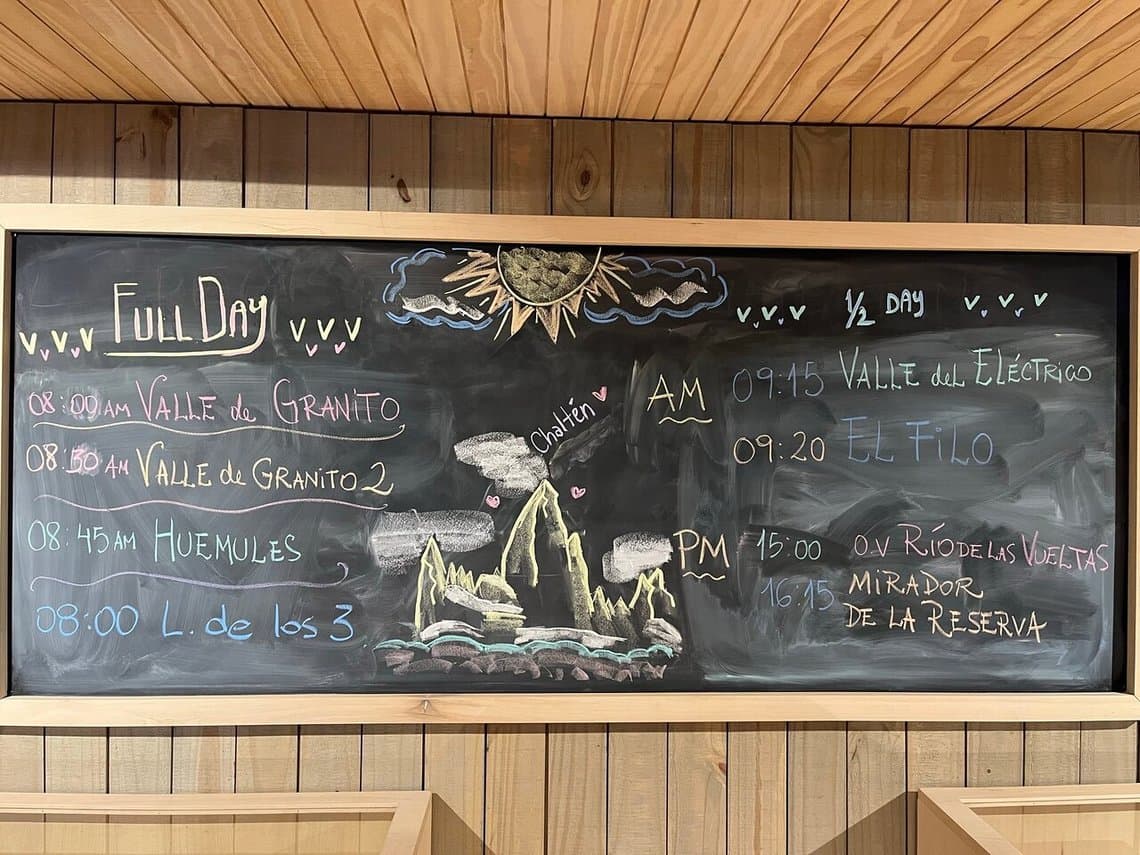 FULL DAY
08:00 AM VALLE de GRANITO
08:30 AM VALLE de GRANITO 2
08:45 AM HUEMULES
08:00 L. de los 3
Chaltén
1/2 DAY
AM
09:15 VALLE del ELÉCTRICO
09:20 EL FiLO
PM
15:00 O.V RÍO DE LAS VUELTAS
16.15 MiRADOR
DE LA RESERVA